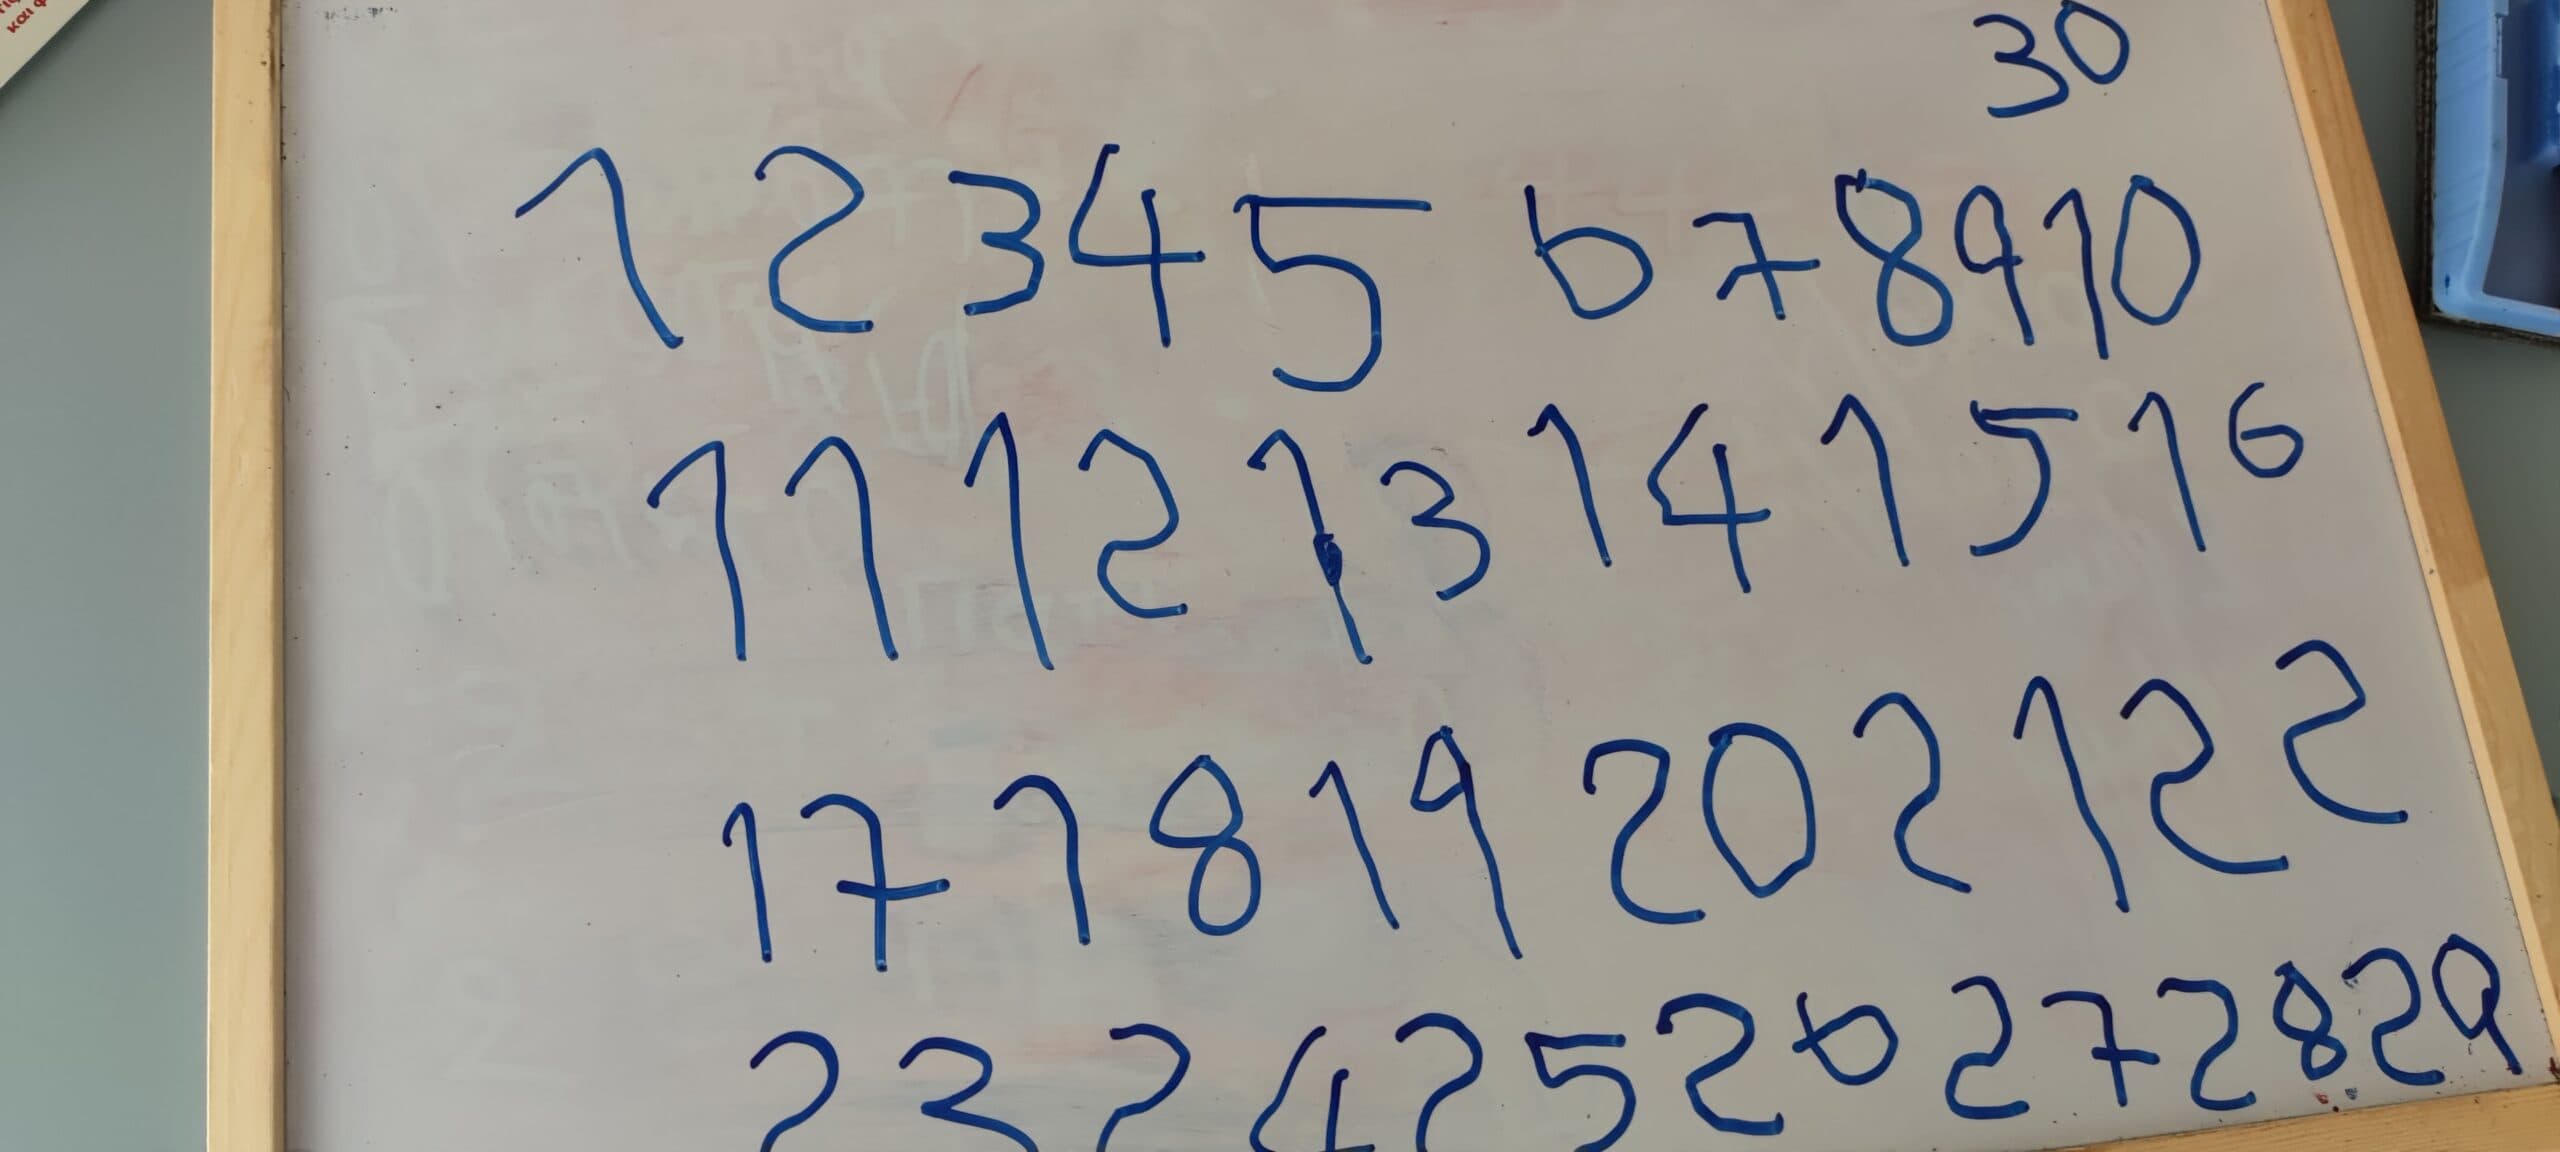 30
1 2 3 4 5 6 7 8 9 10
11 12 13 14 15 16
17 18 19 20 21 22
23 24 25 26 27 28 29